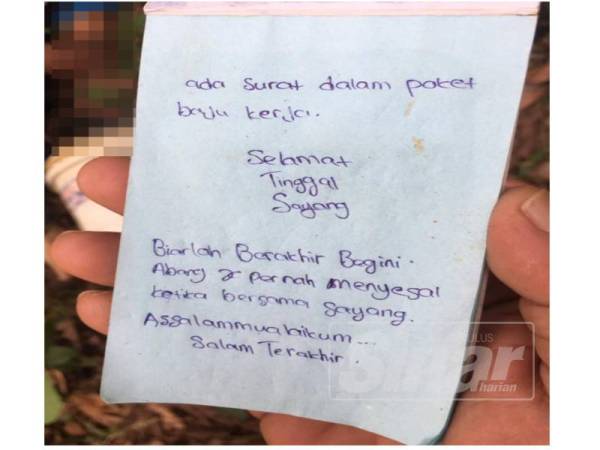 ada surat dalam poket
baju kerja.
Selamat
Tinggal
Sayang
Biarlah Berakhir Begini.
Abang x pernah menyesal
ketika bersama sayang.
Assalammualaikum...
Salam Terakhir.
PLUS
Sinar
harian